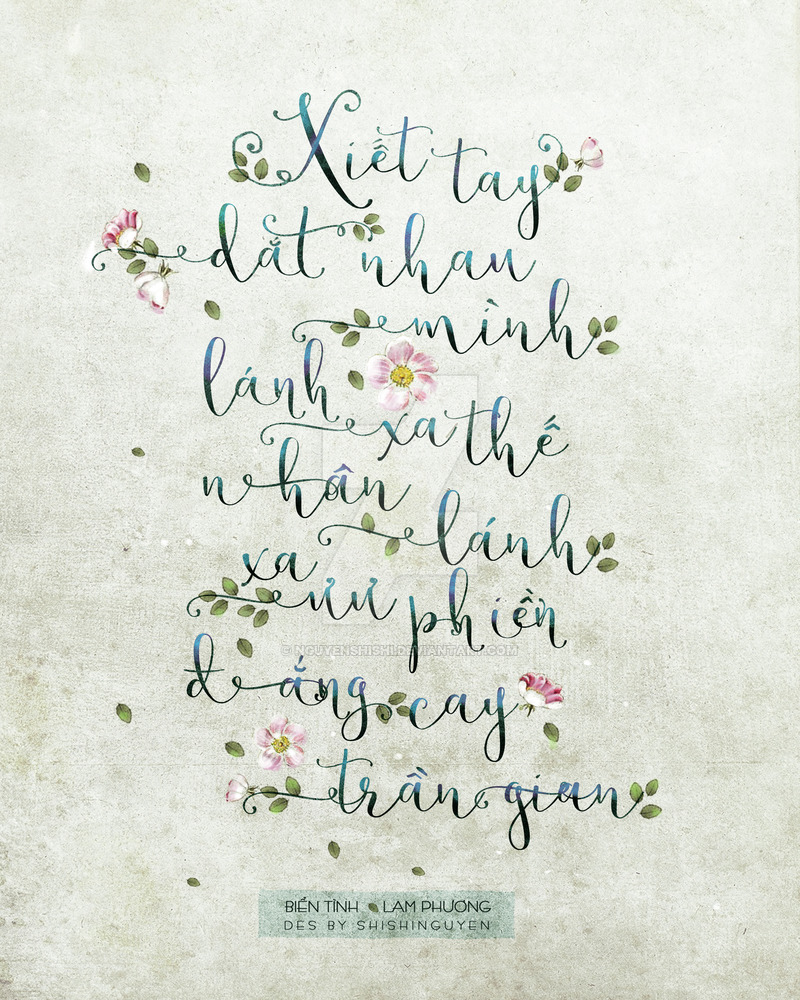 Xiết tay
dắt nhau
mình
lánh
xa thế
nhân
lánh
xa
ưu phiền
đắng cay
trần gian
© NGUYENSHISHI.DEVIANTART.COM
BIỂN TÌNH LAM PHƯƠNG
DES BY SHISHINGUYEN